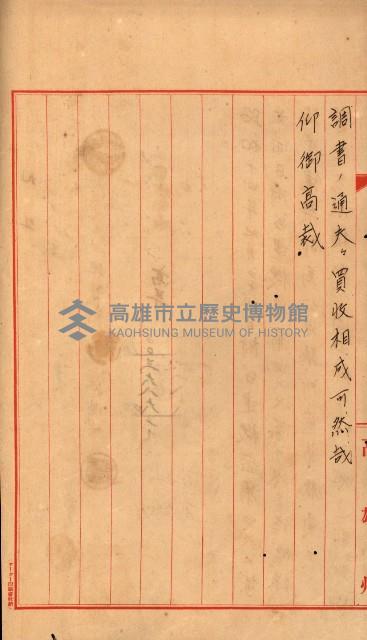 調書ノ通夫々買收相成可然哉
仰御高裁
高雄州
高雄市立歷史博物館
KAOHSIUNG MUSEUM OF HISTORY